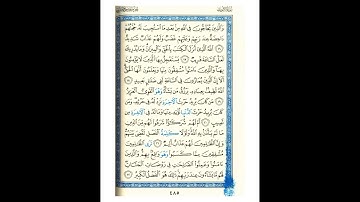 وَالَّذِينَ يُحَاجُّونَ فِي اللَّهِ مِنْ بَعْدِ مَا اسْتُجِيبَ لَهُ حُجَّتُهُمْ
دَاحِضَةٌ عِنْدَ رَبِّهِمْ وَعَلَيْهِمْ غَضَبٌ وَلَهُمْ عَذَابٌ شَدِيدٌ
١٦ اللَّهُ الَّذِي أَنْزَلَ الْكِتَابَ بِالْحَقِّ وَالْمِيزَانَ وَمَا يُدْرِيكَ
لَعَلَّ السَّاعَةَ قَرِيبٌ ١٧ يَسْتَعْجِلُ بِهَا الَّذِينَ لَا يُؤْمِنُونَ
بِهَا وَالَّذِينَ آمَنُوا مُشْفِقُونَ مِنْهَا وَيَعْلَمُونَ أَنَّهَا الْحَقُّ
أَلَا إِنَّ الَّذِينَ يُمَارُونَ فِي السَّاعَةِ لَفِي ضَلَالٍ بَعِيدٍ ١٨
اللَّهُ لَطِيفٌ بِعِبَادِهِ يَرْزُقُ مَنْ يَشَاءُ وَهُوَ الْقَوِيُّ الْعَزِيزُ
١٩ مَنْ كَانَ يُرِيدُ حَرْثَ الْآخِرَةِ نَزِدْ لَهُ فِي حَرْثِهِ وَمَنْ
كَانَ يُرِيدُ حَرْثَ الدُّنْيَا نُؤْتِهِ مِنْهَا وَمَا لَهُ فِي الْآخِرَةِ مِنْ
نَصِيبٍ ٢٠ أَمْ لَهُمْ شُرَكَاءُ شَرَعُوا لَهُمْ مِنَ الدِّينِ
مَا لَمْ يَأْذَنْ بِهِ اللَّهُ وَلَوْلَا كَلِمَةُ الْفَصْلِ لَقُضِيَ بَيْنَهُمْ
وَإِنَّ الظَّالِمِينَ لَهُمْ عَذَابٌ أَلِيمٌ ٢١ تَرَى الظَّالِمِينَ
مُشْفِقِينَ مِمَّا كَسَبُوا وَهُوَ وَاقِعٌ بِهِمْ وَالَّذِينَ
آمَنُوا وَعَمِلُوا الصَّالِحَاتِ فِي رَوْضَاتِ الْجَنَّاتِ
لَهُمْ مَا يَشَاءُونَ عِنْدَ رَبِّهِمْ ذَلِكَ هُوَ الْفَضْلُ الْكَبِيرُ ٢٢
٤٨٥